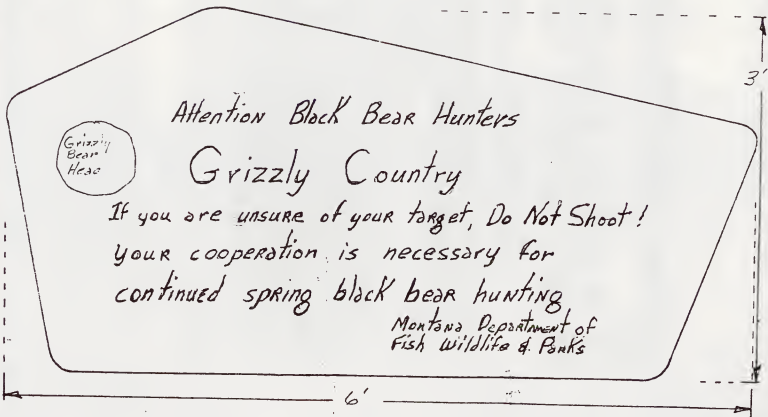 3'
Attention Black Bear Hunters
Grizzly
Bear
Head
Grizzly Country
If you are unsure of your target, Do Not Shoot!
your cooperation is necessary for
continued spring black bear hunting
Montana Department of
Fish Wildlife & Parks
6'